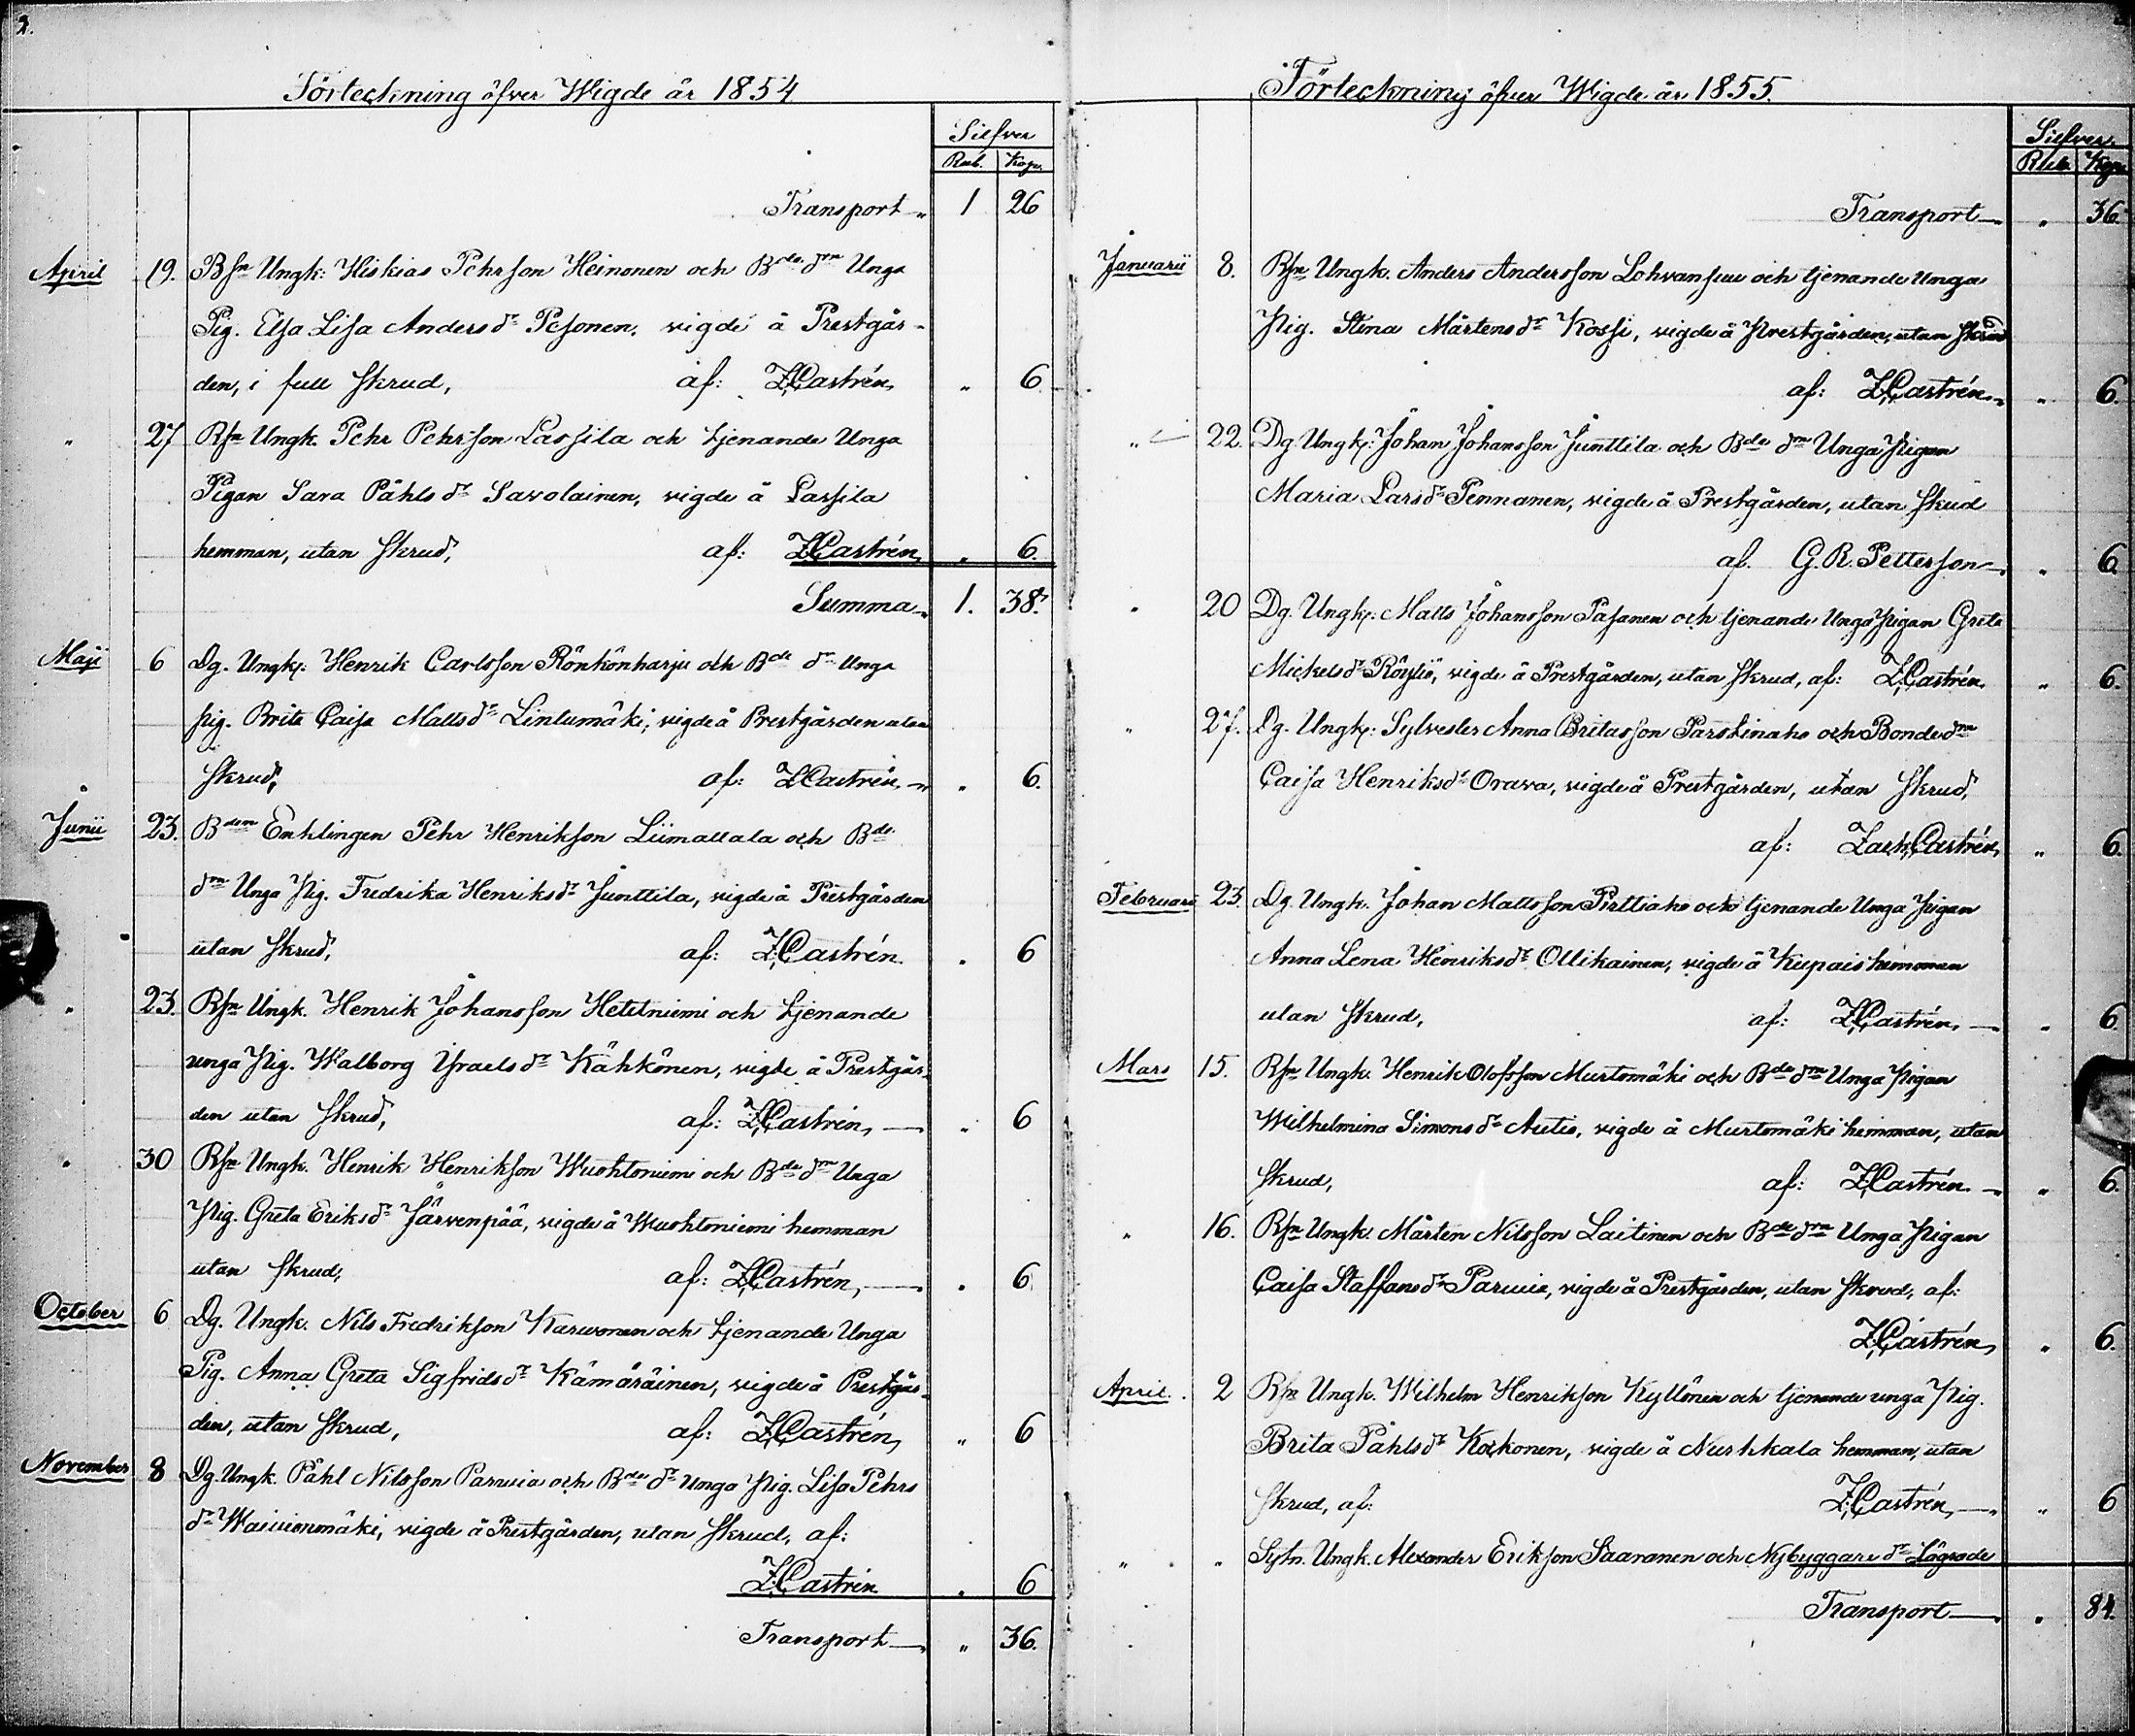 2.
Förteckning öfver Wigde år 1854
Silfver
Rub. Kop.
Transport " 1 26
April 19. Bsn Ungk: Hiskias Pehrson Heinonen och Bde dm Unga
Pig. Elsa Lisa Anders dr Pesonen, vigde å Prestgår-
den, i full skrud, af: Z. Castrén, " 6
" 27 Bsn Ungk. Pehr Pehrsson Lassila och tjenande Unga
Pigan Sara Påhls dr Savolainen, vigde å Lassila
hemman, utan skrud, af: Z. Castrén, " 6.
Summa " 1. 38.
Maji 6 Dg. Ungk: Henrik Carlsson Rönkönharju och Bde dr Unga
pig. Brita Caisa Matts dr Lintumäki, vigde å Prestgården utan
skrud, af: Z. Castrén, " 6.
Junii 23. Bden Enklingen Pehr Henrikson Liimattala och Bde
dm Unga Pig. Fredrika Henriks dr Junttila, vigde å Prestgården
utan skrud, af: Z. Castrén. " 6
" 23. Bsn Ungk. Henrik Johansson Heteniemi och tjenande
unga Pig. Walborg Israels dr Kähkönen, vigde å Prestgår-
den utan skrud, af: Z. Castrén, " 6
" 30 Bsn Ungk. Henrik Henrikson Wuohtoniemi och Bde dm Unga
Pig. Greta Eriks dr Järvenpää, vigde å Wuohtoniemi hemman
utan skrud, af: Z. Castrén, " 6
October 6 Dg. Ungk. Nils Fredrikson Karvonen och tjenande Unga
Pig. Anna Greta Sigfrids dr Kämäräinen, vigde å Prestgår-
den, utan skrud, af: Z. Castrén, " 6
November 8 Dg. Ungk. Påhl Nilsson Parvia och Bde dr Unga Pig. Lisa Pehrs
dr Wainionmäki, vigde å Prestgården, utan skrud, af:
Z. Castrén " 6
Transport " 36.
Förteckning öfver Wigde år 1855.
Silfver.
Rub. Kop.
Transport " 36.
Januarii 8. Bsn Ungk. Anders Andersson Lohvansuu och tjenande Unga
Pig. Stina Mårtens dr Kossi, vigde å Prestgården, utan skrud
af: Z. Castrén " 6.
" 22. Dg. Ungk: Johan Johansson Junttila och Bde dm Unga Pigan
Maria Lars dr Pennanen, vigde å Prestgården, utan skud
af. G. R. Petterson " 6.
" 20 Dg. Ungk: Matts Johansson Pasanen och tjenande Unga Pigan Greta
Mickels dr Röyliö, vigde å Prestgården, utan skrud, af: Z. Castrén. " 6.
" 27. Dg. Ungk: Sylvester Anna Britasson Parstinaho och Bonde dm
Caisa Henriks dr Orava, vigde å Prestgården, utan skrud,
af: Zach. Castrén, " 6.
Februari 23. Dg. Ungk. Johan Mattsson Pirttiaho och tjenande Unga Pigan
Anna Lena Henriks dr Ollikainen, vigde å Kupais hemman
utan skrud, af: Z. Castrén, " 6
Mars 15. Bsn Ungk. Henrik Olofsson Murtomäki och Bde dm Unga Pigan
Wilhelmina Simons dr Autio, vigde å Murtomäki hemman, utan
skrud, af: Z. Castrén " 6.
" 16. Bsn Ungk. Mårten Nilsson Laitinen och Bde dm Unga Pigan
Caisa Staffans dr Parvia, vigde å Prestgården, utan skrud, af:
Z. Castrén, " 6.
April. 2 Bsn Ungk. Wilhelm Henrikson Kyllönen och tjenande unga Pig.
Brita Påhls dr Kokkonen, vigde å Nurhkala hemman, utan
skrud, af: Z. Castrén, " 6
" " Sytn. Ungk. Alexander Erikson Saaranen och Nybyggare dr Lågrade
Transport " 84.